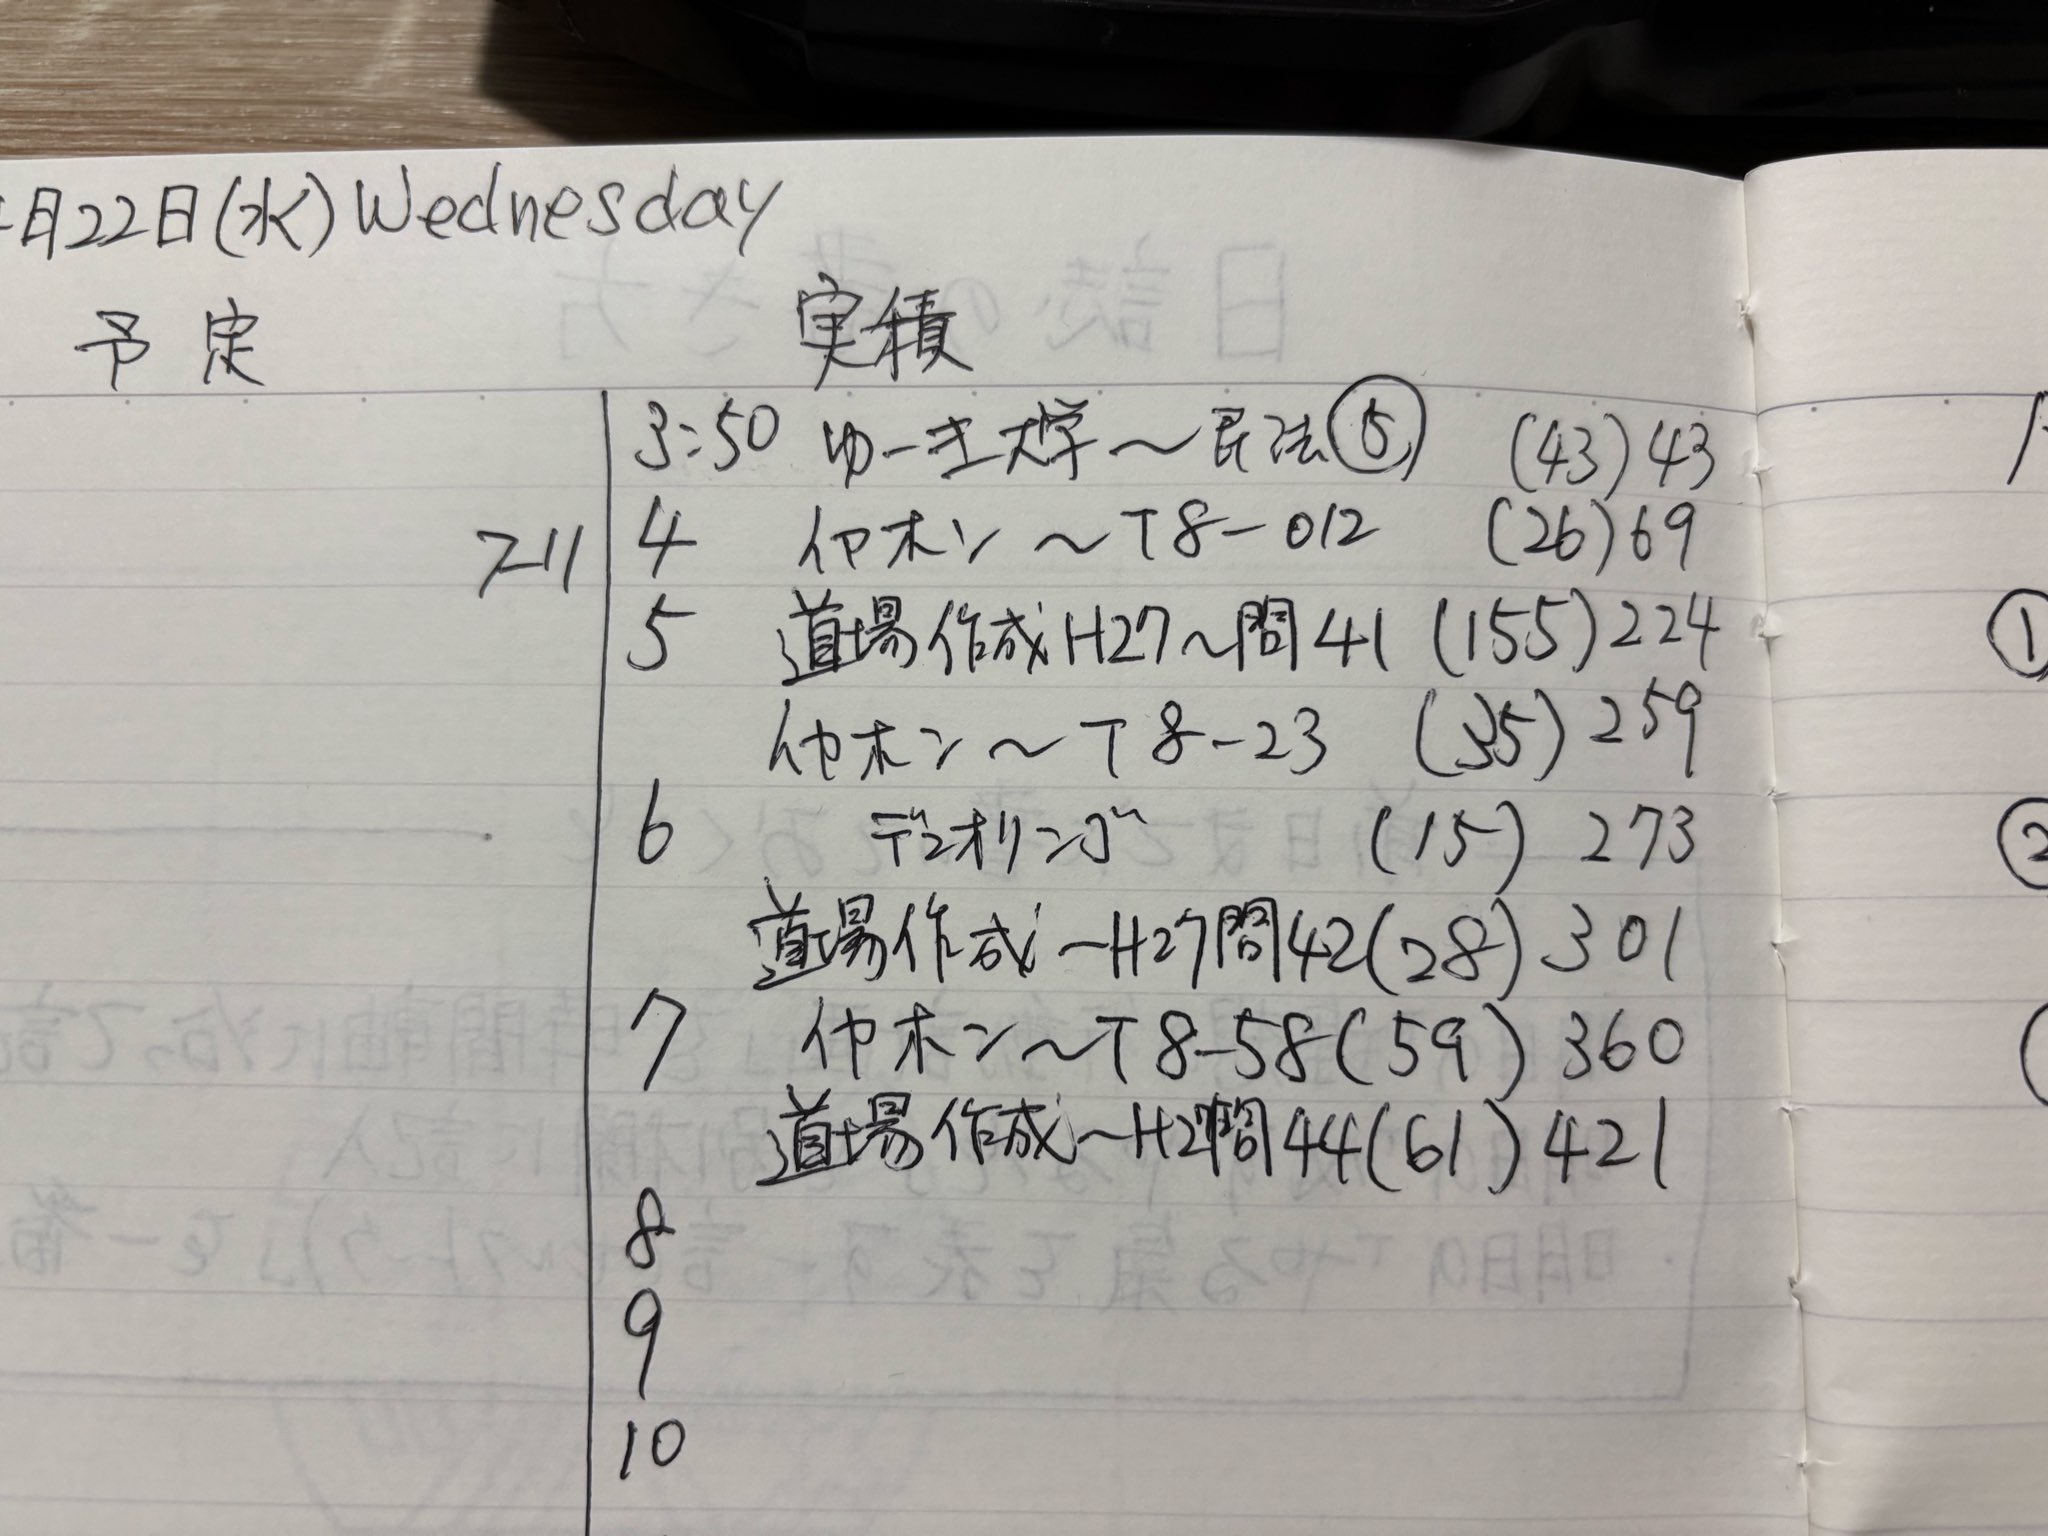 月22日(水) Wednesday
予定 実積
3:50 ゆーき大学〜民法⑤ (43) 43
フリー 4 イヤホン 〜T8-012 (26) 69
5 道場作成H27〜問41 (155) 224
①
イヤホン〜T8-23 (35) 259
6 デュオリンゴ (15) 273
②
道場作成〜H27問42(28) 301
7 イヤホン〜T8-58(59) 360
道場作成〜H27問44(61) 421
8
9
10